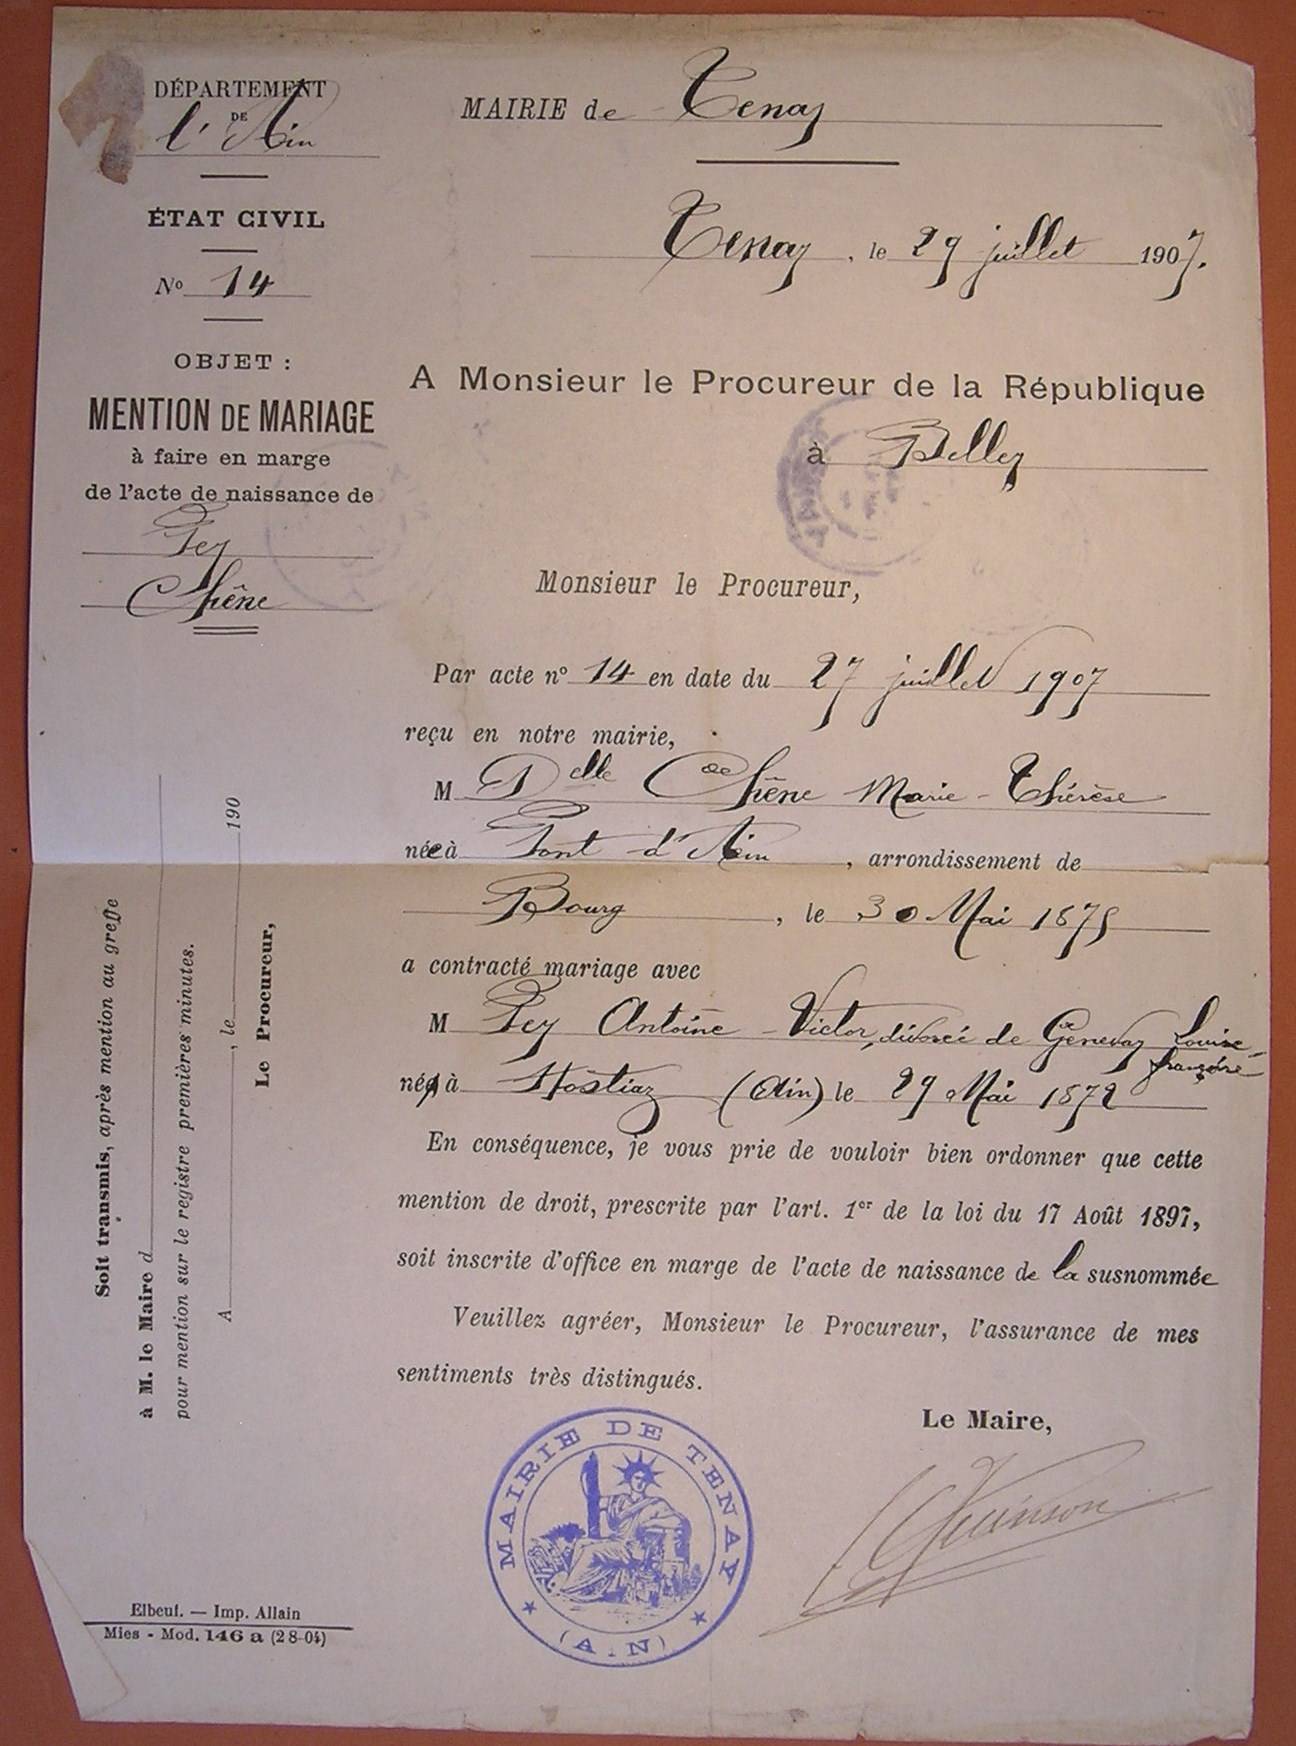 DÉPARTEMENT
DE
l'Ain
ÉTAT CIVIL
No 14
OBJET :
MENTION DE MARIAGE
à faire en marge
de l'acte de naissance de
Pey
Chêne
MAIRIE de Tenay
Tenay, le 29 juillet 1907.
A Monsieur le Procureur de la République
à Belley
Monsieur le Procureur,
Par acte no 14 en date du 27 juillet 1907
reçu en notre mairie,
M Delle Chêne Marie-Thérèse
née à Pont d'Ain, arrondissement de
Bourg, le 30 Mai 1875
a contracté mariage avec
M Pey Antoine-Victor, divorcé de Génevay Louise-
françoise
né à Hostiaz (Ain) le 29 Mai 1872
En conséquence, je vous prie de vouloir bien ordonner que cette
mention de droit, prescrite par l'art. 1er de la loi du 17 Août 1897,
soit inscrite d'office en marge de l'acte de naissance de la susnommée
Veuillez agréer, Monsieur le Procureur, l'assurance de mes
sentiments très distingués.
Le Maire,
Quinson
MAIRIE DE TENAY
(AIN)
Soit transmis, après mention au greffe
à M. le Maire d
pour mention sur le registre premières minutes.
A , le 190
Le Procureur,
Elbeuf. — Imp. Allain
Mies - Mod. 146 a (28-04)